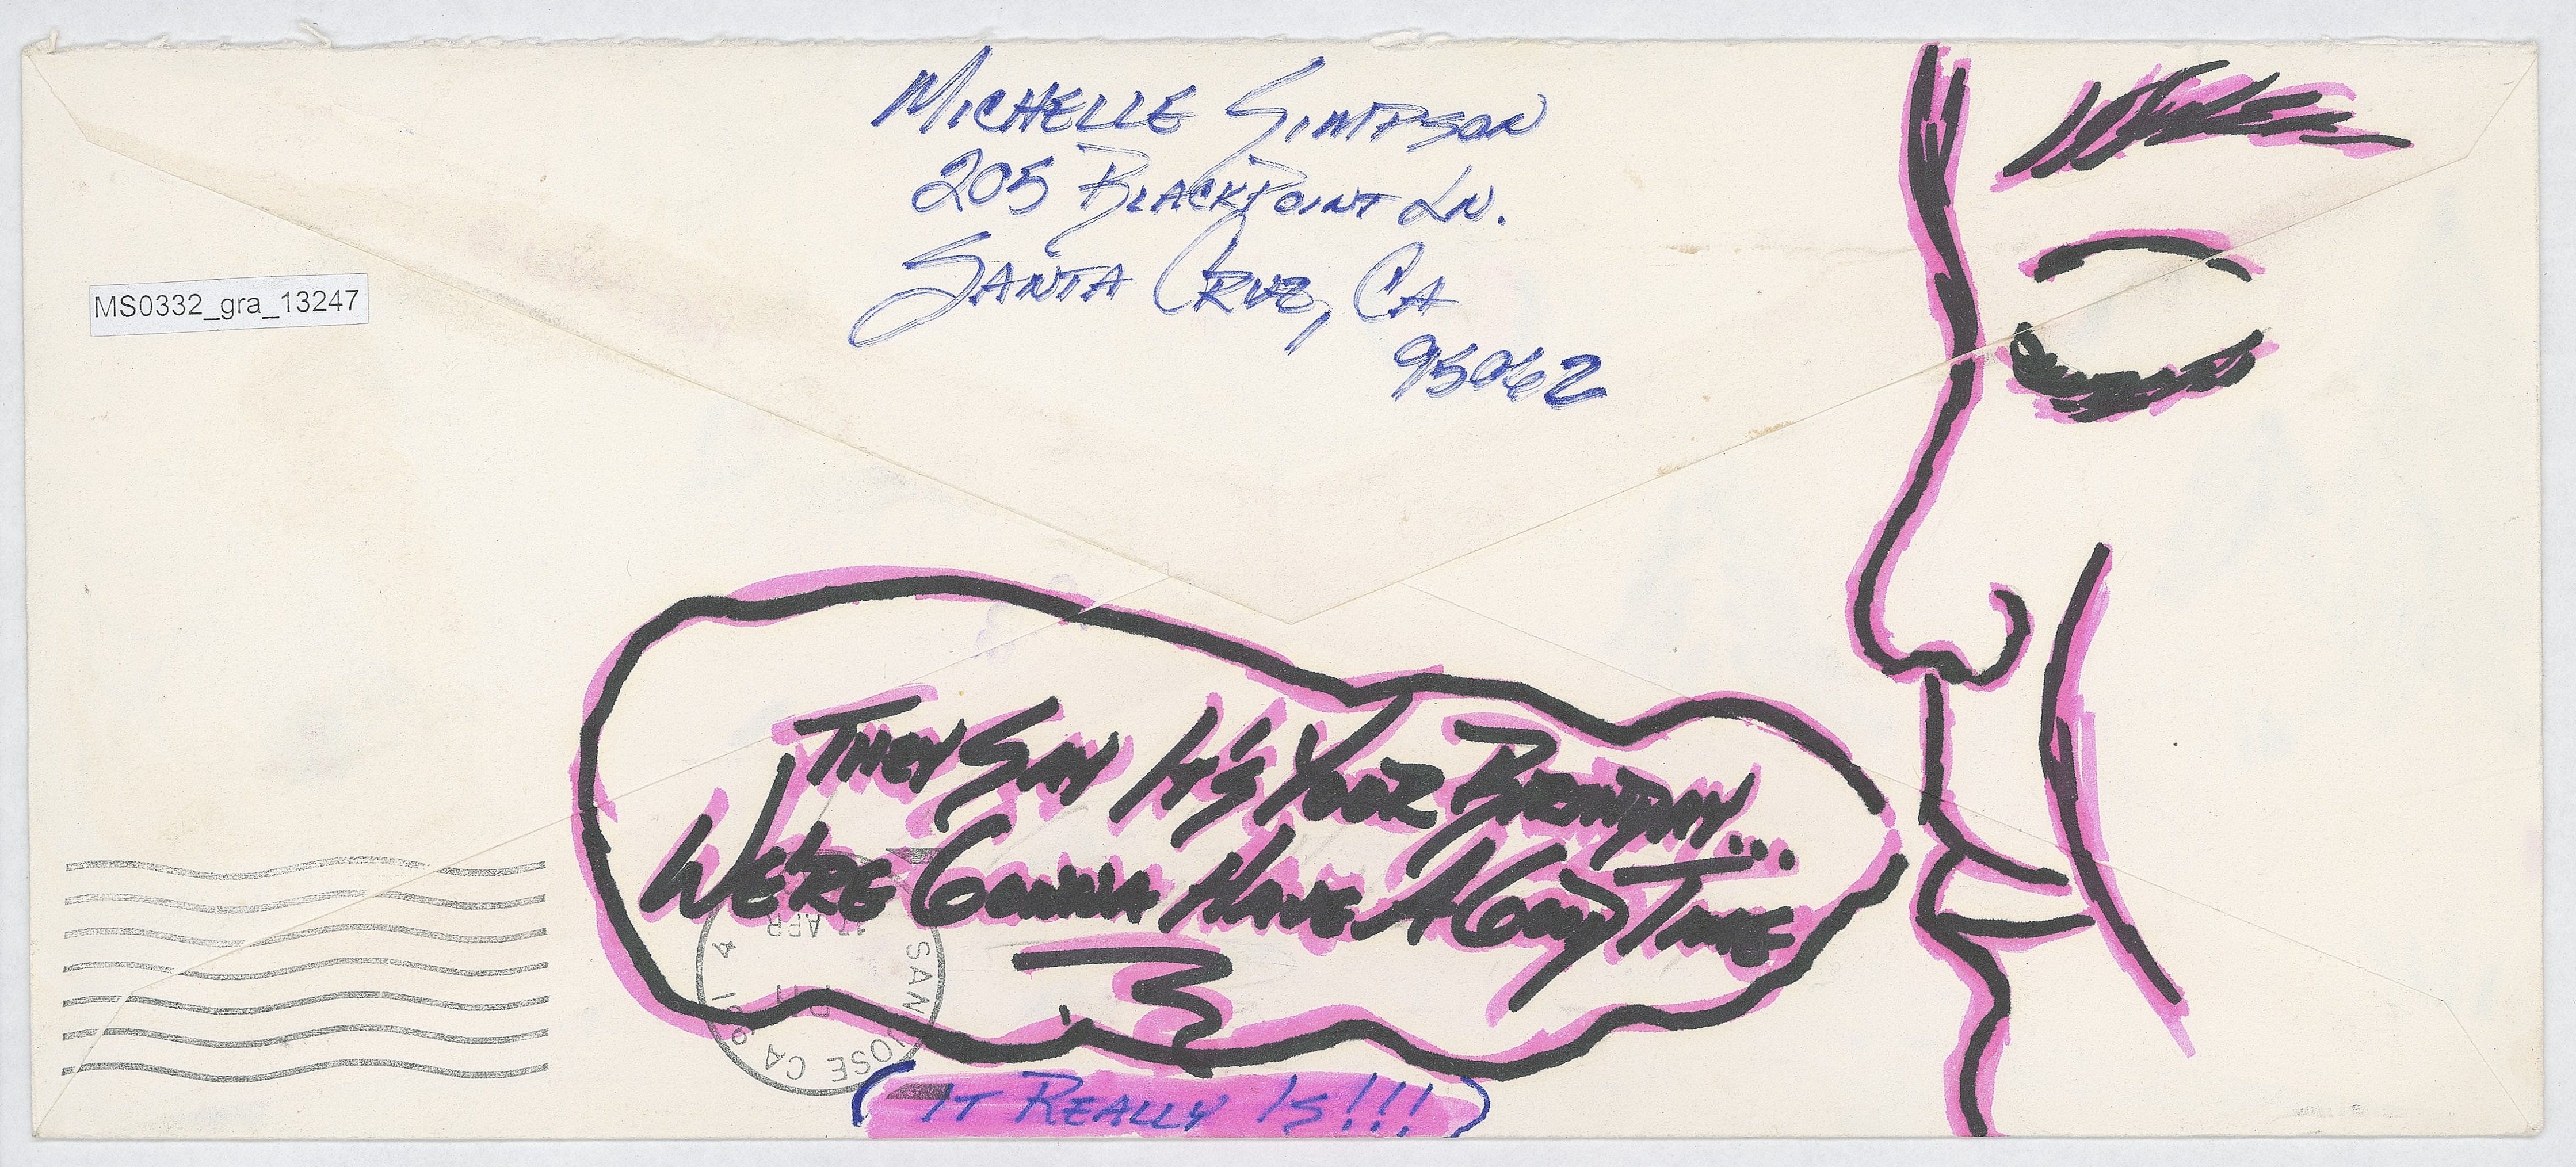 MICHELLE SIMPSON
205 BLACKPOINT LN.
SANTA CRUZ, CA
95062
MS0332_gra_13247
THEY SAY IT'S YOUR BIRTHDAY...
WE'RE GONNA HAVE A GOOD TIME
(IT REALLY IS!!!)
SAN JOSE CA
APR